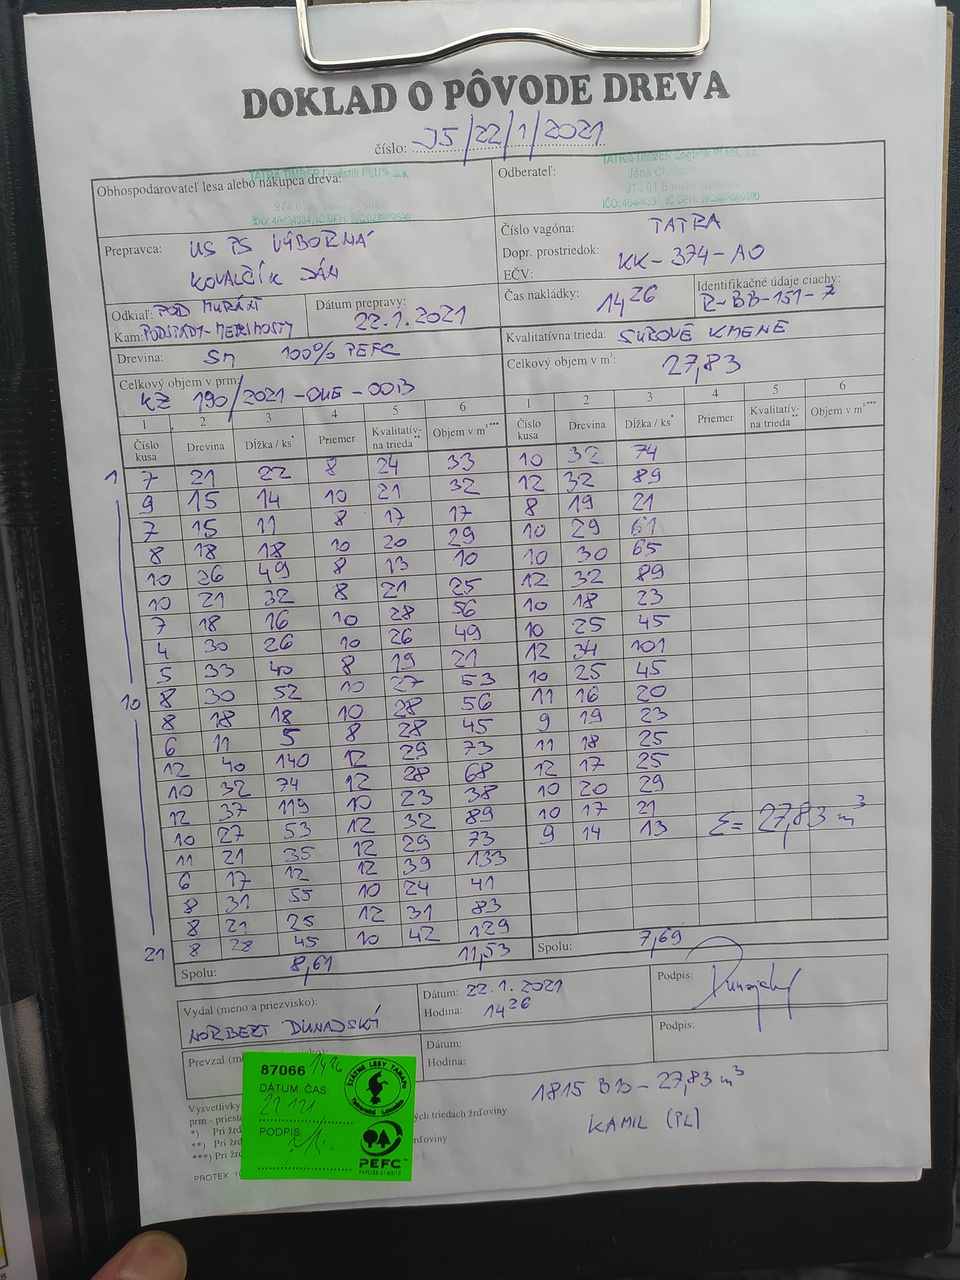 DOKLAD O PÔVODE DREVA
číslo: J5/22/1/2021
Obhospodarovateľ lesa alebo nákupca dreva:
TATRA TIMBER Logistik PLUS
Odberateľ:
TATRA TIMBER Logistik PLUS
974 01 Banská Bystrica
Prepravca: US PS VÝBORNÁ
KOVALČÍK JÁN
Číslo vagóna: TATRA
Dopr. prostriedok:
EČV: KK-374-AO
Odkiaľ: POD MURÁNI
Kam:
Dátum prepravy:
22.1.2021
Čas nakládky: 14 26
Identifikačné údaje ciachy:
R-BB-151-7
Drevina: SM 100% PEFC
Kvalitatívna trieda: SUROVÉ KMENE
Celkový objem v prm
KZ 190/2021-OUE-0013
Celkový objem v m³: 27,83
1 2 3 4 5 6 1 2 3 4 5 6
Číslo kusa Drevina Dĺžka / ks* Priemer Kvalitatív-na trieda** Objem v m³*** Číslo kusa Drevina Dĺžka / ks* Priemer Kvalitatív-na trieda** Objem v m³***
1 7 21 22 8 24 33 10 32 74
9 15 14 10 21 32 12 32 89
7 15 11 8 17 17 8 19 21
8 18 18 10 20 29 10 29 61
10 26 49 8 13 10 10 30 65
10 21 32 8 21 25 12 32 89
7 18 16 10 28 56 10 18 23
4 30 26 10 26 49 10 25 45
5 33 40 8 19 21 12 34 101
10 8 30 52 10 27 53 10 25 45
8 18 18 10 28 56 11 16 20
6 11 5 8 28 45 9 19 23
12 40 140 12 29 73 11 18 25
10 32 74 12 28 68 12 17 25
12 37 119 10 23 38 10 20 29
10 27 53 12 32 89 10 17 21
11 21 35 12 29 73 9 14 13 Σ= 27,83 m³
6 17 12 12 39 133
8 31 55 10 24 41
8 21 25 12 31 83
21 8 28 45 10 42 129
Spolu: 8,61 11,53 Spolu: 7,69
Vydal (meno a priezvisko):
NORBERT DUNAJSKÝ
Dátum: 22.1.2021
Hodina: 14 26
Podpis:
Prevzal
Dátum:
Hodina:
Podpis:
1815 BB - 27,83 m³
KAMIL (PL)
87066 1426
DÁTUM, ČAS:
22 1 21
PODPIS
ŠTÁTNE LESY TANAPU
Tatranská Lomnica
PEFC™
Vysvetlivky
prm - priest
*) Pri žr
ých triedach žrďoviny
**) Pri žr
ďoviny
***) Pri žr
PROTEX